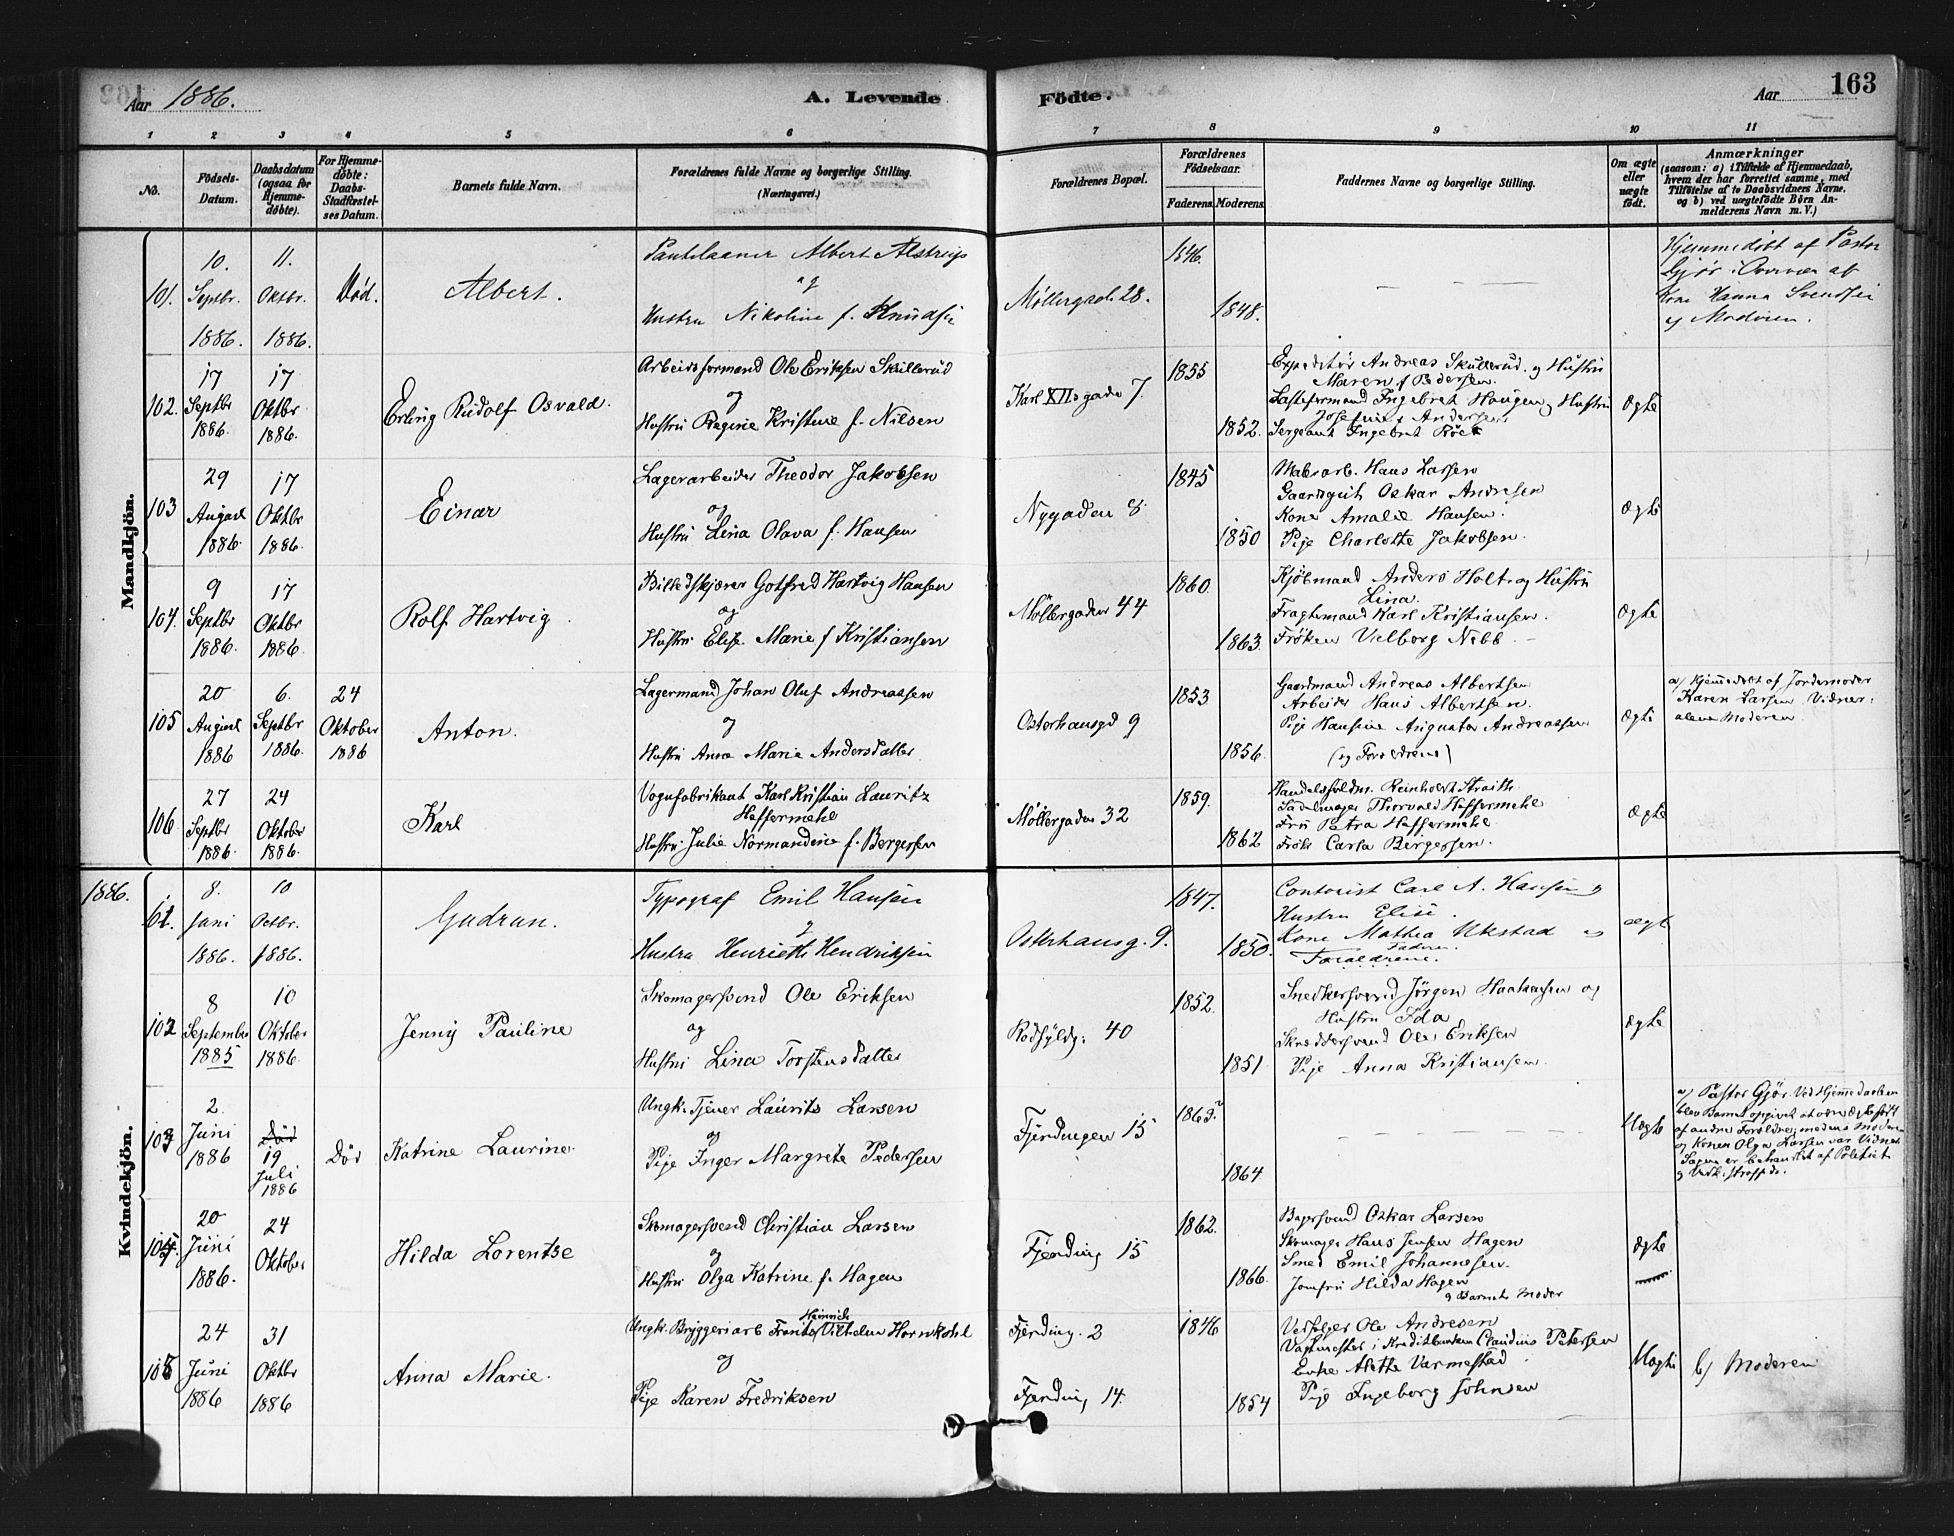 Aar 1886.
A. Levende
Födte.
Aar
163
1 2 3 4 5 6 7 8 9 10 11
No.
Födsels-Datum.
Daabsdatum (ogsaa for Hjemme-döbte).
For Hjemme-döbte: Daabs-Stadfæstel-ses Datum.
Barnets fulde Navn.
Forældrenes fulde Navne og borgerlige Stilling.
(Næringsvei.)
Forældrenes Bopæl.
Forældrenes Födselsaar.
Faderens. Moderens.
Faddernes Navne og borgerlige Stilling.
Om ægte eller uægte födt.
Anmærkninger
(saasom: a) i Tilfælde af Hjemmedaab, hvem der har forrettet samme, med Tilföielse af to Daabsvidners Navne, og b) ved uægtefödte Börn An-melderens Navn m. V.)
Mandkjön.
101. 10. Septbr. 1886. 11. Oktbr. 1886. Död. Albert.
Albert Alstrup
og
Hustru Nikoline f. Knudsen
Møllergade 28. 1846. 1848.
Hjemmedöbt af Pastor
Gjør i Overvær af
Kone Hanna Svendsen
og Moderen.
102. 17 Septbr 1886. 17 Oktbr 1886. Erling Rudolf Osvald.
Arbeidsformand Ole Eriksen Skillerud
og
Hustru Regine Kristine f. Nilsen
Karl XIIs gade 7. 1855 1852.
Expeditör Andreas Skullerud og Hustru
Maren f. Pedersen.
Lasteformand Ingebret Haugen og Hustru
Josefine f. Andersen
Sergeant Ingebret
Ægte
103 29 August 1886. 17 Oktbr 1886. Einar
Lagerarbeider Theodor Jakobsen
og
Hustru Lina Olava f. Hansen
Nygaden 8. 1845 1850
Hans Larsen
Gaardsgut Oskar Andresen
Kone Amalie Hansen.
Pige Charlotte Jakobsen.
Ægte
104. 9 Septbr 1886. 17 Oktbr 1886. Rolf Hartvig
Billedskjærer Gotfred Hartvig Hansen
og
Hustru Elise Marie f Kristiansen
Møllergaden 44 1860. 1863.
Kjöbmand Anders Holt og Hustru
Lina.
Fragtemand Karl Kristiansen.
Fröken Valborg Nebb.
Ægte
105 20 August 1886 6. Septbr 1886. 24 Oktober 1886 Anton.
Lagermand Johan Oluf Andreassen
og
Hustru Anne Marie Andersdatter
Osterhausgd 9 1853 1856.
Gaardmand Andreas Albertsen
Arbeider Hans Albertsen.
Pige Hansine Augusta Andreassen
(og Forældrene)
Ægte
a) Hjemmedöbt af Jordemoder
Karen Larsen Vidner:
alene Moderen
106 27 Septbr 1886. 24 Oktober 1886. Karl
Vognfabrikant Karl Kristian Lauritz
Heffermehl
Hustru Julie Normandine f. Bergersen
Møllergaden 32 1859. 1862
Handelsfuldm. Reinholdt Straith
Sadelmager Thorvald Heffermehl
Fru Petra Heffermehl
Frøken Carla Bergersen.
Ægte
1886.
Kvindekjön.
61. 8. Juni 1886. 10 Octbr. 1886. Gudrun.
Typograf Emil Hansen
og
Hustru Henriette Hendriksen
Osterhausg. 9. 1847. 1850.
Contorist Carl A. Hansen og
Hustru Elise.
Kone Mathea Ukstad og
Faderen.
Forældrene.
ægte
102 8 September 1885 10 Oktober 1886. Jenny Pauline
Skomagersvend Ole Eriksen
og
Hustru Lina Torstensdatter
Rodfyldg. 40 1852. 1851
Snedkersvend Jörgen Haakensen og
Hustru Ida
Skræddersvend Ole Eriksen
Pige Anna Kristiansen.
Ægte
103 2. Juni 1886 Död 19 Juli 1886 Död Katrine Laurine.
Ungk. Tjener Laurits Larsen
og
Pige Inger Margrete Pedersen
Fjerdingen 15 1863? 1864.
Uægte
a) Pastor Gjør. Ved Hjemmedaaben
blev Barnet opgivet at være ægtefödt
af andre Forældre; medens Moderen
og Konen Olga Larsen var Vidner
Sagen er behandlet af Politiet
104. 20 Juni 1886. 24 Oktober Hilda Lorentse
Skomagersvend Christian Larsen
og
Hustru Olga Katrine f. Hagen
Fjerding 15 1862. 1866.
Bagersvend Oskar Larsen
Skomager Hans Jensen Hagen
Smed Emil Johannesen.
Jomfru Hilda Hagen
og Barnets Moder
Ægte
105 24 Juni 1886 31 Oktbr 1886 Anna Marie.
Heinrich
Ungk. Bryggeriarb. Frants Vilhelm Hornkohl
og
Pige Karen Fredriksen
Fjerding. 2
Fjerding 14. 1846 1854
Ole Andresen
Vagtmester i Kreditbanken Claudius Petersen
Enke Alette Varmestad
Pige Ingeborg Johnsen
Uægte
b) Moderen